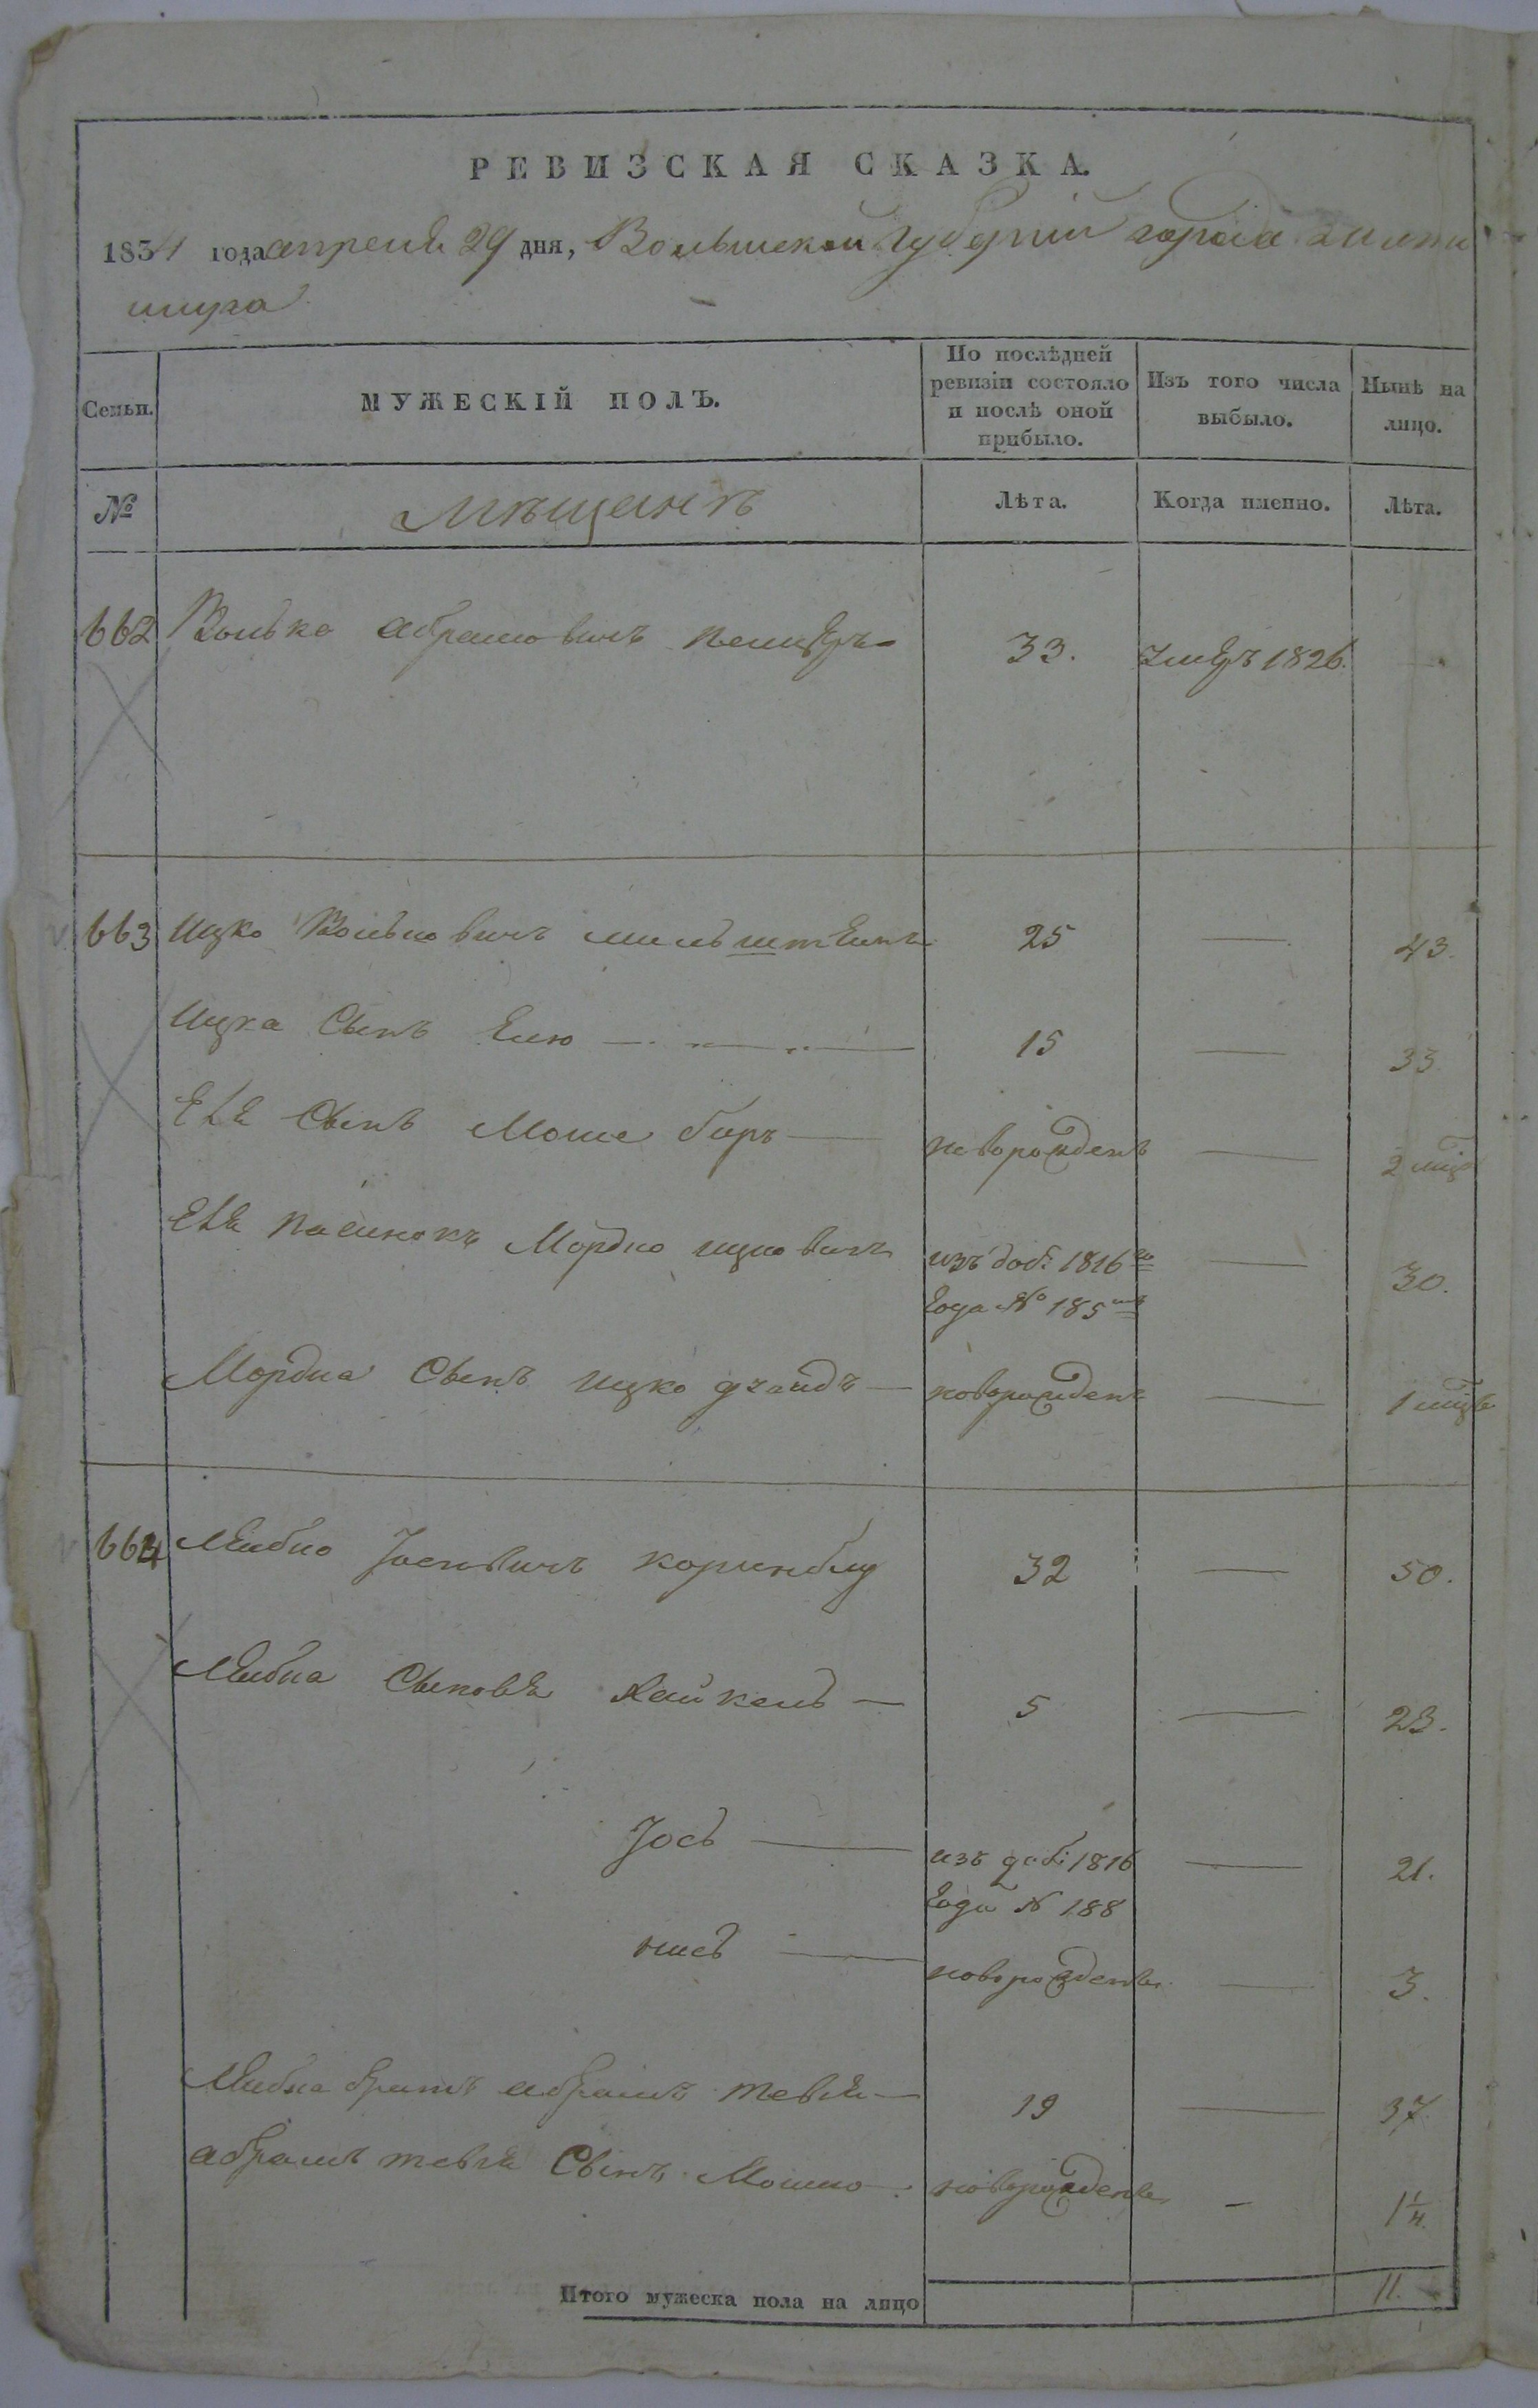 РЕВИЗСКАЯ СКАЗКА.
1834 года апреля 29 дня, Волынской Губернии города
Семьи.
МУЖЕСКІЙ ПОЛЪ.
По послѣдней ревизіи состояло и послѣ оной прибыло.
Изъ того числа выбыло.
Нынѣ на лицо.
№
Мѣщанъ
Лѣта.
Когда именно.
Лѣта.
662 Волько Абрамовичъ 33. умеръ 1826. —
663 Ицко Волковичъ Мильштеинъ 25 — 43.
Ицка Сынъ Елю — 15 — 33
Еля Сынъ Моше беръ — новорожденъ — 2 міц
Еля пасинокъ Мордко Ицковичъ изъ доб: 1816го — 30.
года № 185
Мордка Сынъ Ицко — новорожденъ — 1 міц
664 Лейбко Іосевичъ 32 — 50.
Лейбка Сыновья Хайкель — 5 — 23.
Іось — изъ доб: 1816 — 21.
года N 188
нись — новорожденъ — 3.
Лейбка братъ абрамъ тевля — 19 — 37
абрамъ тевля Сынъ Мошко новорожденъ — 1 1/4.
Итого мужеска пола на лицо 11.